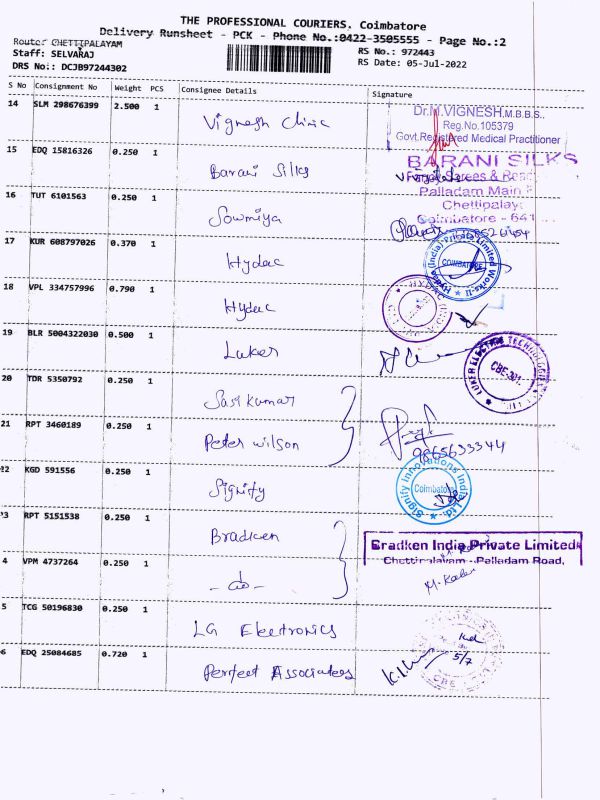 THE PROFESSIONAL COURIERS. Coimbatore
Delivery Runsheet - PCK - Phone No.:0422-3505555 - Page No.:2
Route: CHETTIPALAYAM
RS No.: 972443
Staff: SELVARAJ
RS Date: 05-Jul-2022
DRS No:: DCJB97244302
S No Consignment No Weight PCS Consignee Details Signature
14 SLM 298676399 2.500 1 Vignesh Clinic
Dr.M.VIGNESH,M.B.B.S.,
Reg.No.105379
Govt.Registered Medical Practitioner
15 EDQ 15816326 0.250 1 Barani Silks
BARANI SILKS
Sarees &
Palladam Main
Chettipalay
Coimbatore - 641
16 TUT 6101563 0.250 1 Sowmiya
17 KUR 608797026 0.370 1 Hydac
(India) Private Limited
COIMBATORE
18 VPL 334757996 0.790 1 Hydac
19 BLR 5004322030 0.500 1 Luker
LUKER ELECTRIC TECHNOLOGIES
CBE-301
20 TDR 5350792 0.250 1 Sasi Kumar
21 RPT 3460189 0.250 1 Peter Wilson
9865633344
22 KGD 591556 0.250 1 Signify
Signify Innovations India Ltd.
Coimbatore
3 RPT 5151538 0.250 1 Bradken
Bradken India Private Limited
Chettipalayam - Palladam Road,
4 VPM 4737264 0.250 1 - do -
5 TCG 50196830 0.250 1 LG Electronics
6 EDQ 25084685 0.720 1 Perfect Associates
5/7
CBE